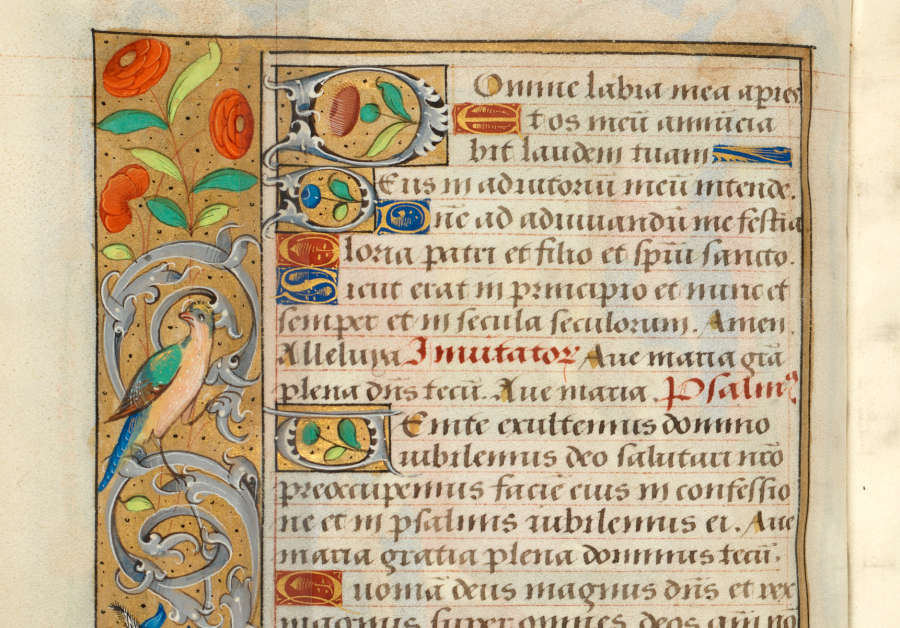 Domine labia mea aperies
Et os meū annūcia
bit laudem tuam
Deus in adiutoriū meū intende.
Dn̄e ad adiuuandū me festina
Gloria patri et filio et spūi sancto.
Sicut erat in principio et nunc et
semper et in secula seculorum. Amen.
Alleluya Inuitatoꝛ Aue maria grā
plena dn̄s tecū. Aue maria. Psalmꝰ
Uenite exultemus domino
iubilemus deo salutari nr̄o
preoccupemus faciē eius in confessio
ne et in psalmis iubilemus ei. Aue
maria gratia plena dominus tecū.
Quoniā deus magnus dn̄s et rex
magnus super omnes deos qm̄ no